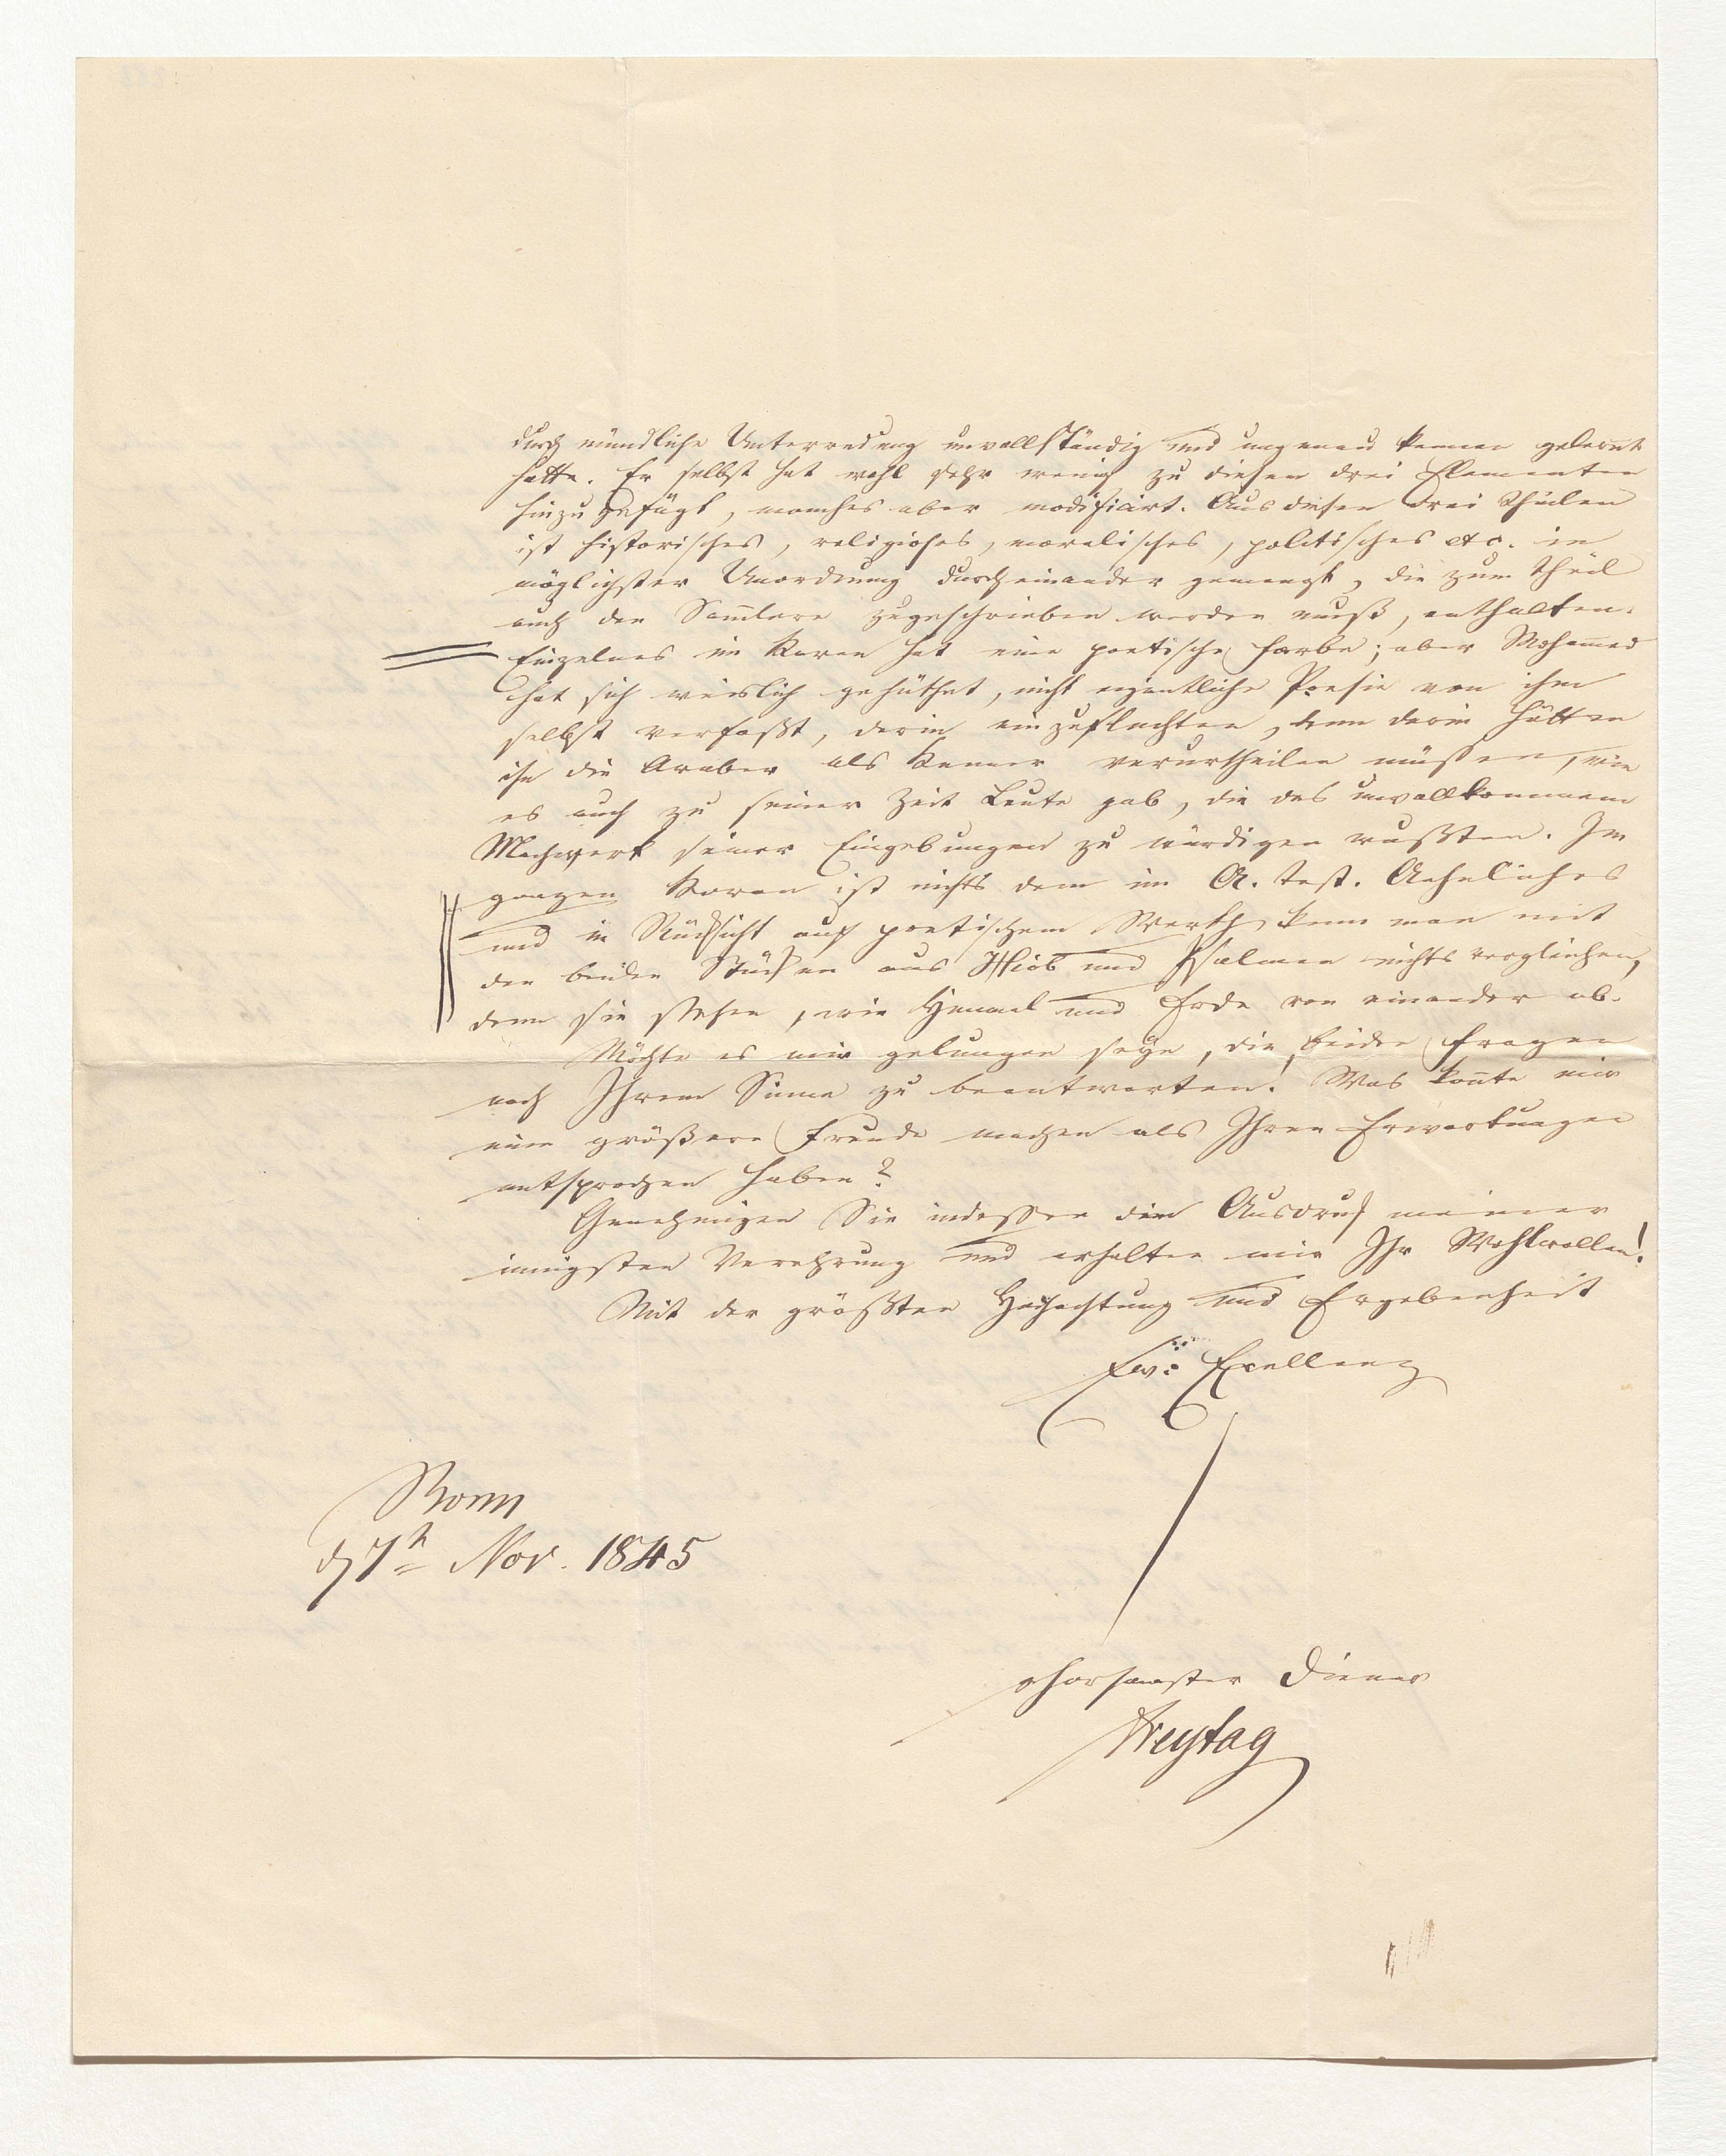 durch mündliche Unterredung unvollständig und ungenau kennen gelernt
hatte. Er selbst hat wohl sehr wenig zu diesen drei Elementen
hinzugefügt, manches aber modificirt. Aus diesen drei Theilen
ist historisches, religioses, moralisches, politisches etc. in
möglichster Unordnung durcheinander gemengt, die zum Theil
auch den Samlern zugeschrieben werden muß, enthalten.
Einzelnes im Koran hat eine poetische Farbe; aber Mohamed
hat sich weislich gehüthet, nicht eigentliche Poesie von ihm
selbst verfaßt, darin einzuflechten, denn darin hätten
ihn die Araber als Kenner verurtheilen müssen, wie
es auch zu seiner Zeit Leute gab, die das unvollkommene
Machwerk seiner Eingebungen zu würdigen wußten. Im
ganzen Koran ist nichts dem im A. Test. Aehnliches
und in Rücksicht auf poetischem Werth kann man mit
den beiden Stücken aus Hiob und Psalmen nichts vergleichen,
denn sie stehen, wie Himmel und Erde von einander ab.
Möchte es mir gelungen seyn, die beiden Fragen
nach Ihrem Sinne zu beantworten! Was konte mir
eine größere Freude machen als Ihren Erwartungen
entsprochen haben?
Genehmigen Sie indessen den Ausdruck meiner
innigsten Verehrung und erhalten mir Ihr Wohlwollen!
Mit der größten Hochachtung und Ergebenheit
Ew: Excellenz
Bonn
d 7n Nov. 1845
ghorsamster Diener
Freytag